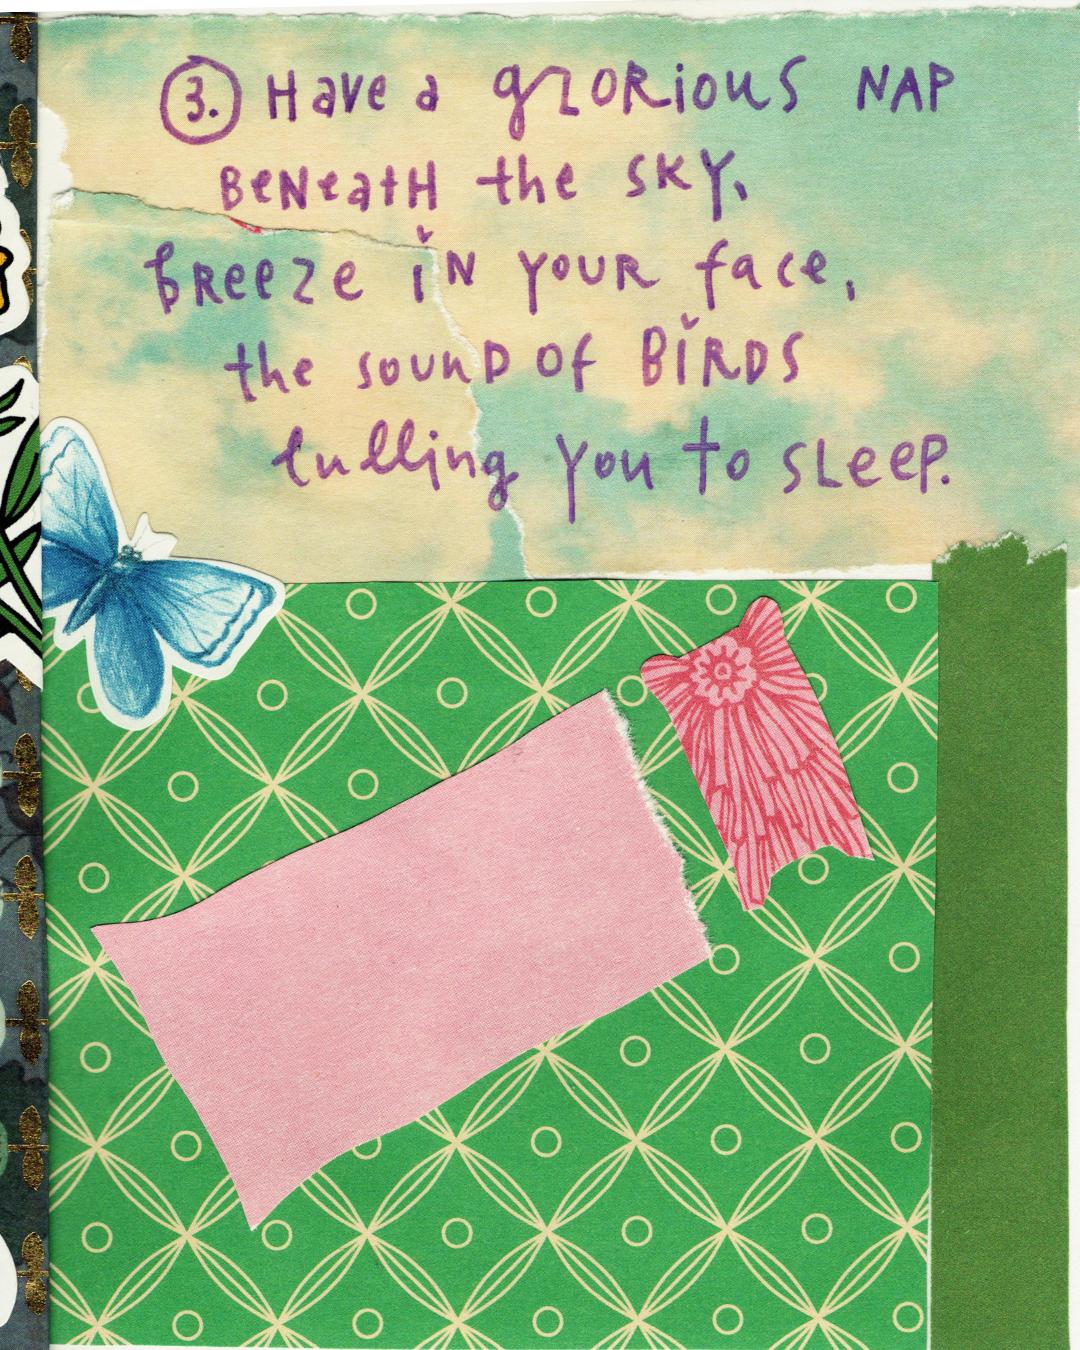 3. Have a glorious NAP
BeNeatH the SKY,
breeze iN YOUR face,
the sounD of BiRDS
lulling you to sLeep.